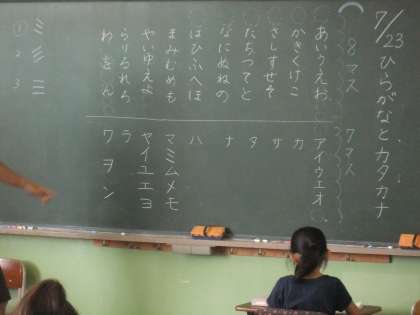 7/23 ひらがなとカタカナ
8マス
7マス
あいうえお
アイウエオ
かきくけこ
カ
さしすせそ
サ
たちつてと
タ
なにぬねの
ナ
はひふへほ
ハ
まみむめも
マミムメモ
やいゆえよ
ヤイユエヨ
らりるれろ
ラ
わをん
ワヲン
①
2
3